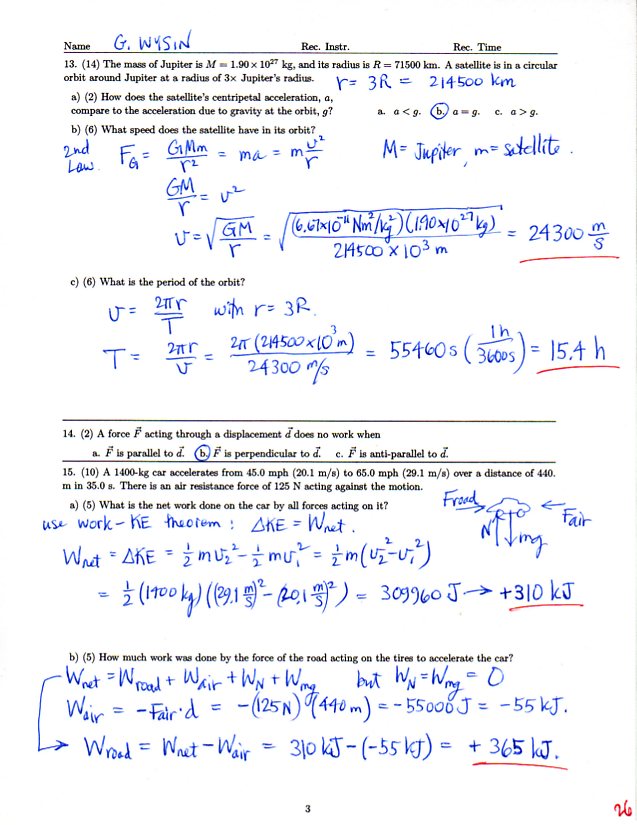 Name G. WYSIN Rec. Instr. Rec. Time
13. (14) The mass of Jupiter is M = 1.90 × 10²⁷ kg, and its radius is R = 71500 km. A satellite is in a circular
orbit around Jupiter at a radius of 3× Jupiter's radius. r = 3R = 214500 km
a) (2) How does the satellite's centripetal acceleration, a,
compare to the acceleration due to gravity at the orbit, g? a. a < g. b. a = g. c. a > g.
b) (6) What speed does the satellite have in its orbit?
2nd Law. F_G = GMm/r² = ma = m v²/r M = Jupiter, m = satellite.
GM/r = v²
v = √(GM/r) = √((6.67×10⁻¹¹ Nm²/kg²)(1.90×10²⁷ kg)/(214500 × 10³ m)) = 24300 m/s
c) (6) What is the period of the orbit?
v = 2πr/T with r = 3R.
T = 2πr/v = 2π(214500×10³ m)/(24300 m/s) = 55460 s (1h/3600s) = 15.4 h
14. (2) A force F⃗ acting through a displacement d⃗ does no work when
a. F⃗ is parallel to d⃗. b. F⃗ is perpendicular to d⃗. c. F⃗ is anti-parallel to d⃗.
15. (10) A 1400-kg car accelerates from 45.0 mph (20.1 m/s) to 65.0 mph (29.1 m/s) over a distance of 440.
m in 35.0 s. There is an air resistance force of 125 N acting against the motion.
a) (5) What is the net work done on the car by all forces acting on it? Froad Fair
use work-KE theorem: ΔKE = Wnet. N mg
Wnet = ΔKE = ½ m v₂² - ½ m v₁² = ½ m (v₂² - v₁²)
= ½ (1400 kg) ((29.1 m/s)² - (20.1 m/s)²) = 309960 J → +310 kJ
b) (5) How much work was done by the force of the road acting on the tires to accelerate the car?
Wnet = Wroad + Wair + W_N + Wmg but W_N = Wmg = 0
Wair = -Fair·d = -(125 N)(440 m) = -55000 J = -55 kJ.
Wroad = Wnet - Wair = 310 kJ - (-55 kJ) = + 365 kJ.
3
26